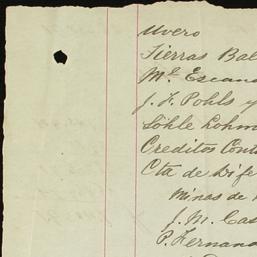 Uvero
Tierras Bal
M. Escan
J. F. Pohls y
Söhle Lohm
Creditos Cont
Cta de Dife
Minas de
J. M. Cas
P. Fernand